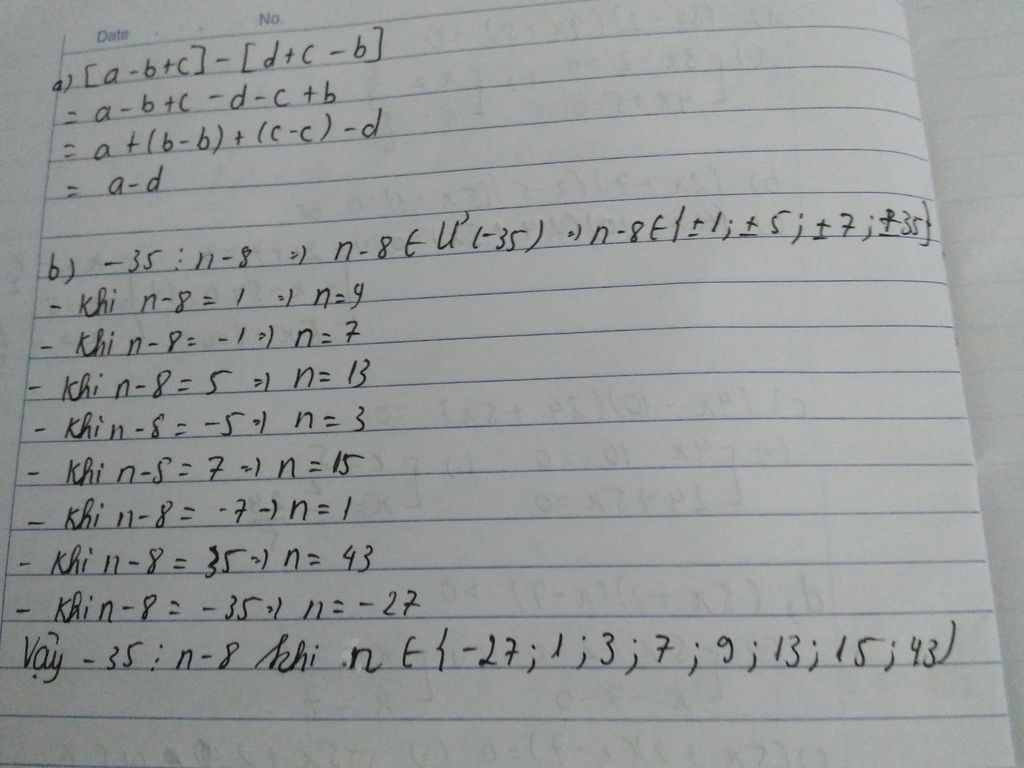 Date No.
a) [a-b+c] - [d+c-b]
= a-b+c-d-c+b
= a+(b-b)+(c-c)-d
= a-d
b) -35 ⋮ n-8 => n-8 ∈ Ư(-35) => n-8 ∈ {±1; ±5; ±7; ±35}
- Khi n-8 = 1 => n=9
- Khi n-8 = -1 => n=7
- Khi n-8 = 5 => n=13
- Khi n-8 = -5 => n=3
- Khi n-8 = 7 => n=15
- Khi n-8 = -7 => n=1
- Khi n-8 = 35 => n=43
- Khi n-8 = -35 => n=-27
Vậy -35 ⋮ n-8 khi n ∈ {-27; 1; 3; 7; 9; 13; 15; 43}